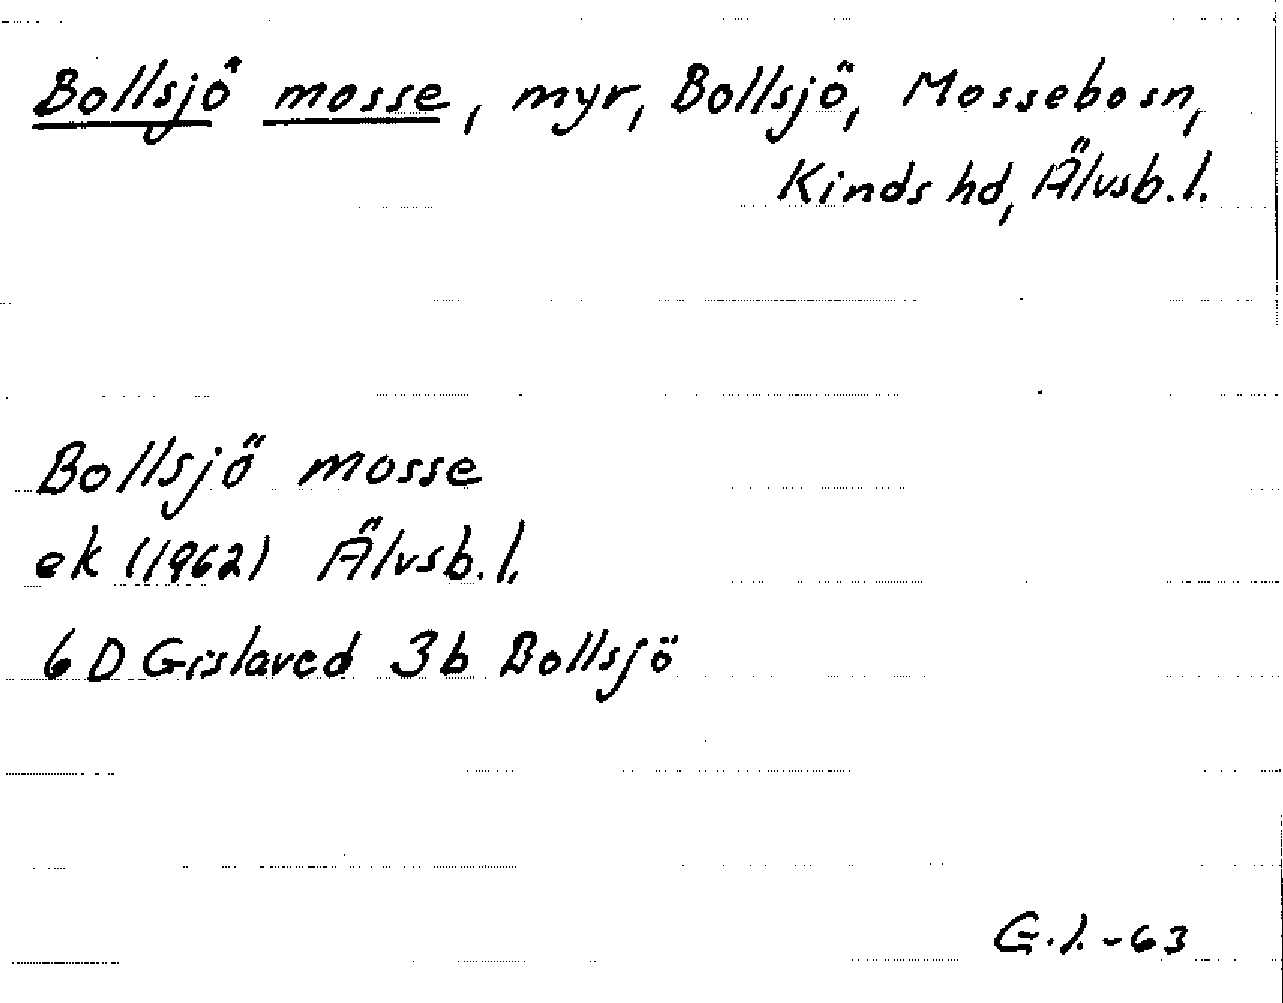 Bollsjö mosse, myr, Bollsjö, Mossebo sn,
Kinds hd, Älvsb. l.
Bollsjö mosse
ek (1962) Älvsb. l.
6 D Gislaved 3b Bollsjö
G.l. -63